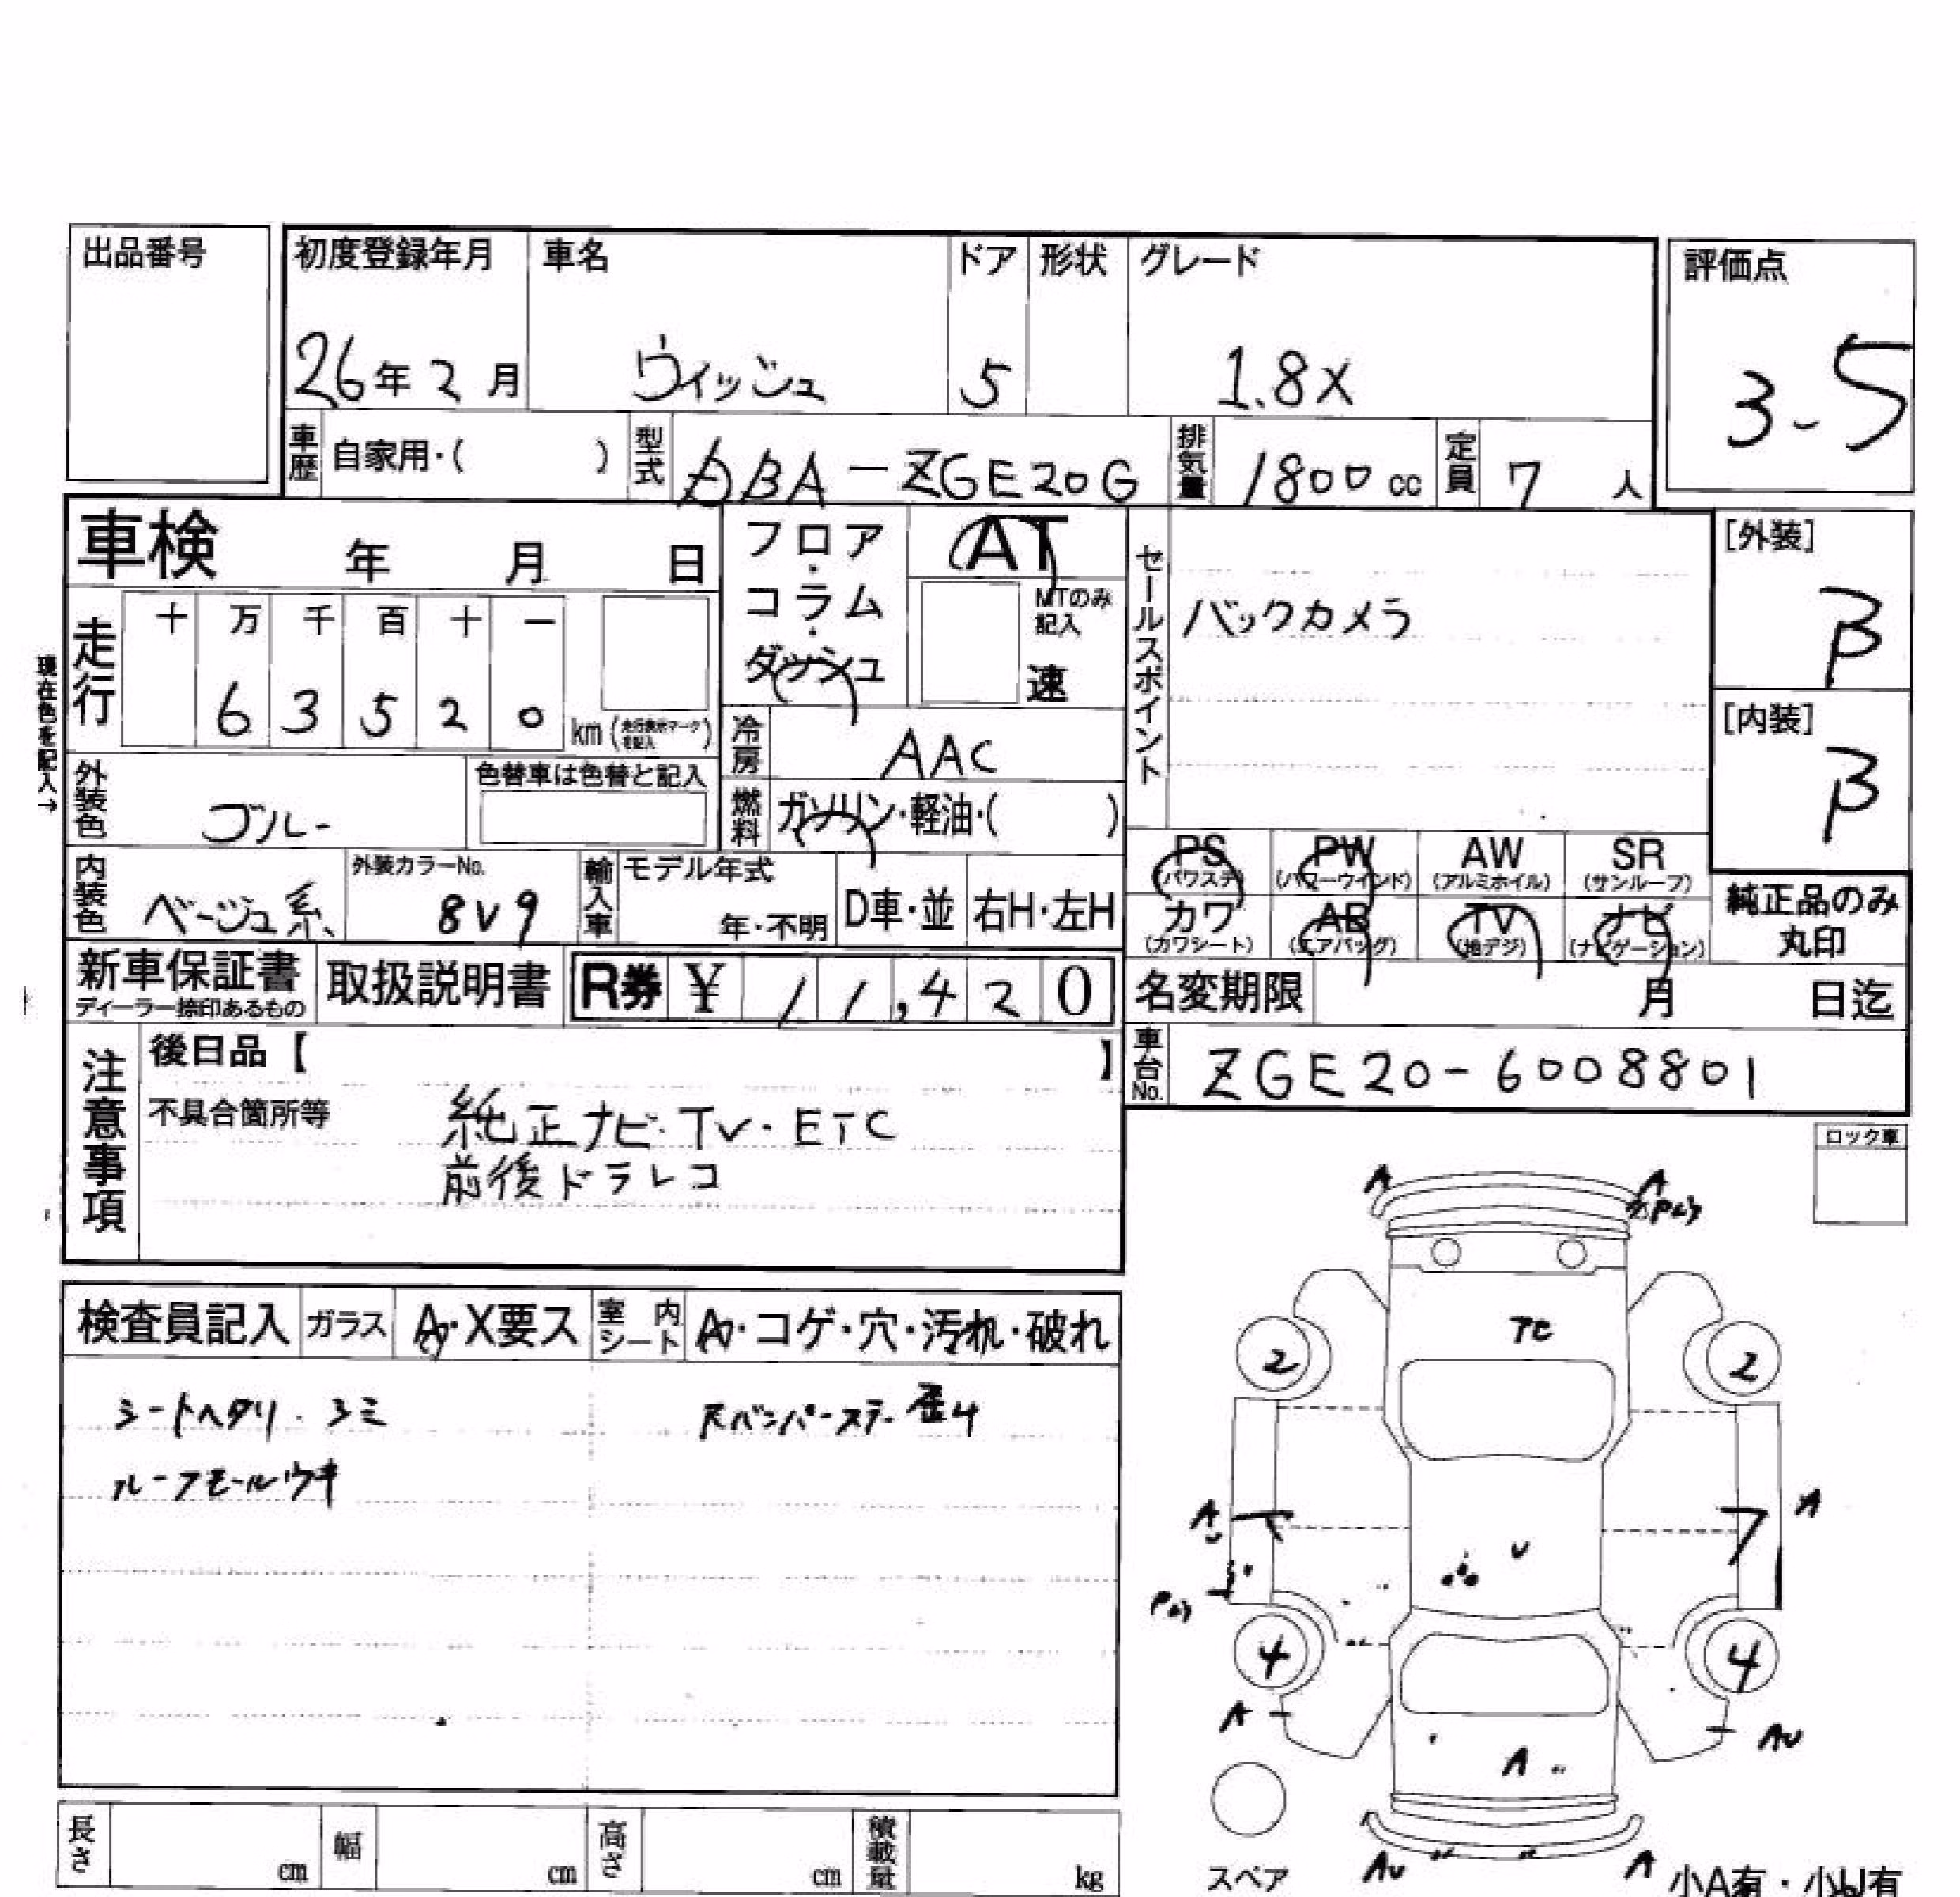 出品番号
初度登録年月 車名 ドア 形状 グレード 評価点
26年2月 ウィッシュ 5 1.8X 3-5
車歴 自家用・( ) 型式 DBA-ZGE20G 排気量 1800cc 定員 7人
車検 年 月 日
フロア・コラム・ダッシュ AT
MTのみ記入
速
セールスポイント
バックカメラ
[外装]
B
[内装]
B
現在色を記入→
走行 十 万 千 百 十 一
6 3 5 2 0 km (走行表示マークを記入)
冷房 AAC
外装色 ゴルー 色替車は色替と記入
燃料 ガソリン・軽油・( )
内装色 ベージュ系 外装カラーNo. 8V9
輸入車 モデル年式 年・不明 D車・並 右H・左H
PS (パワステ) PW (パワーウインド) AW (アルミホイル) SR (サンルーフ)
カワ (カワシート) AB (エアバッグ) TV (地デジ) ナビ (ナビゲーション)
純正品のみ丸印
新車保証書 ディーラー捺印あるもの 取扱説明書 R券 ¥ 11,420
名変期限 月 日迄
車台No. ZGE20-6008801
注意事項
後日品【 】
不具合箇所等
純正ナビ・TV・ETC
前後ドラレコ
ロック車
検査員記入 ガラス A・X要ス 室内シート A・コゲ・穴・汚れ・破れ
シートヘタリ.シミ
バンパーステー歪み
ルーフモールウキ
A A
TC
2 2
A A
U
4 4
A AU
A
AU A
スペア
小A有・小U有
長さ cm 幅 cm 高さ cm 積載量 kg